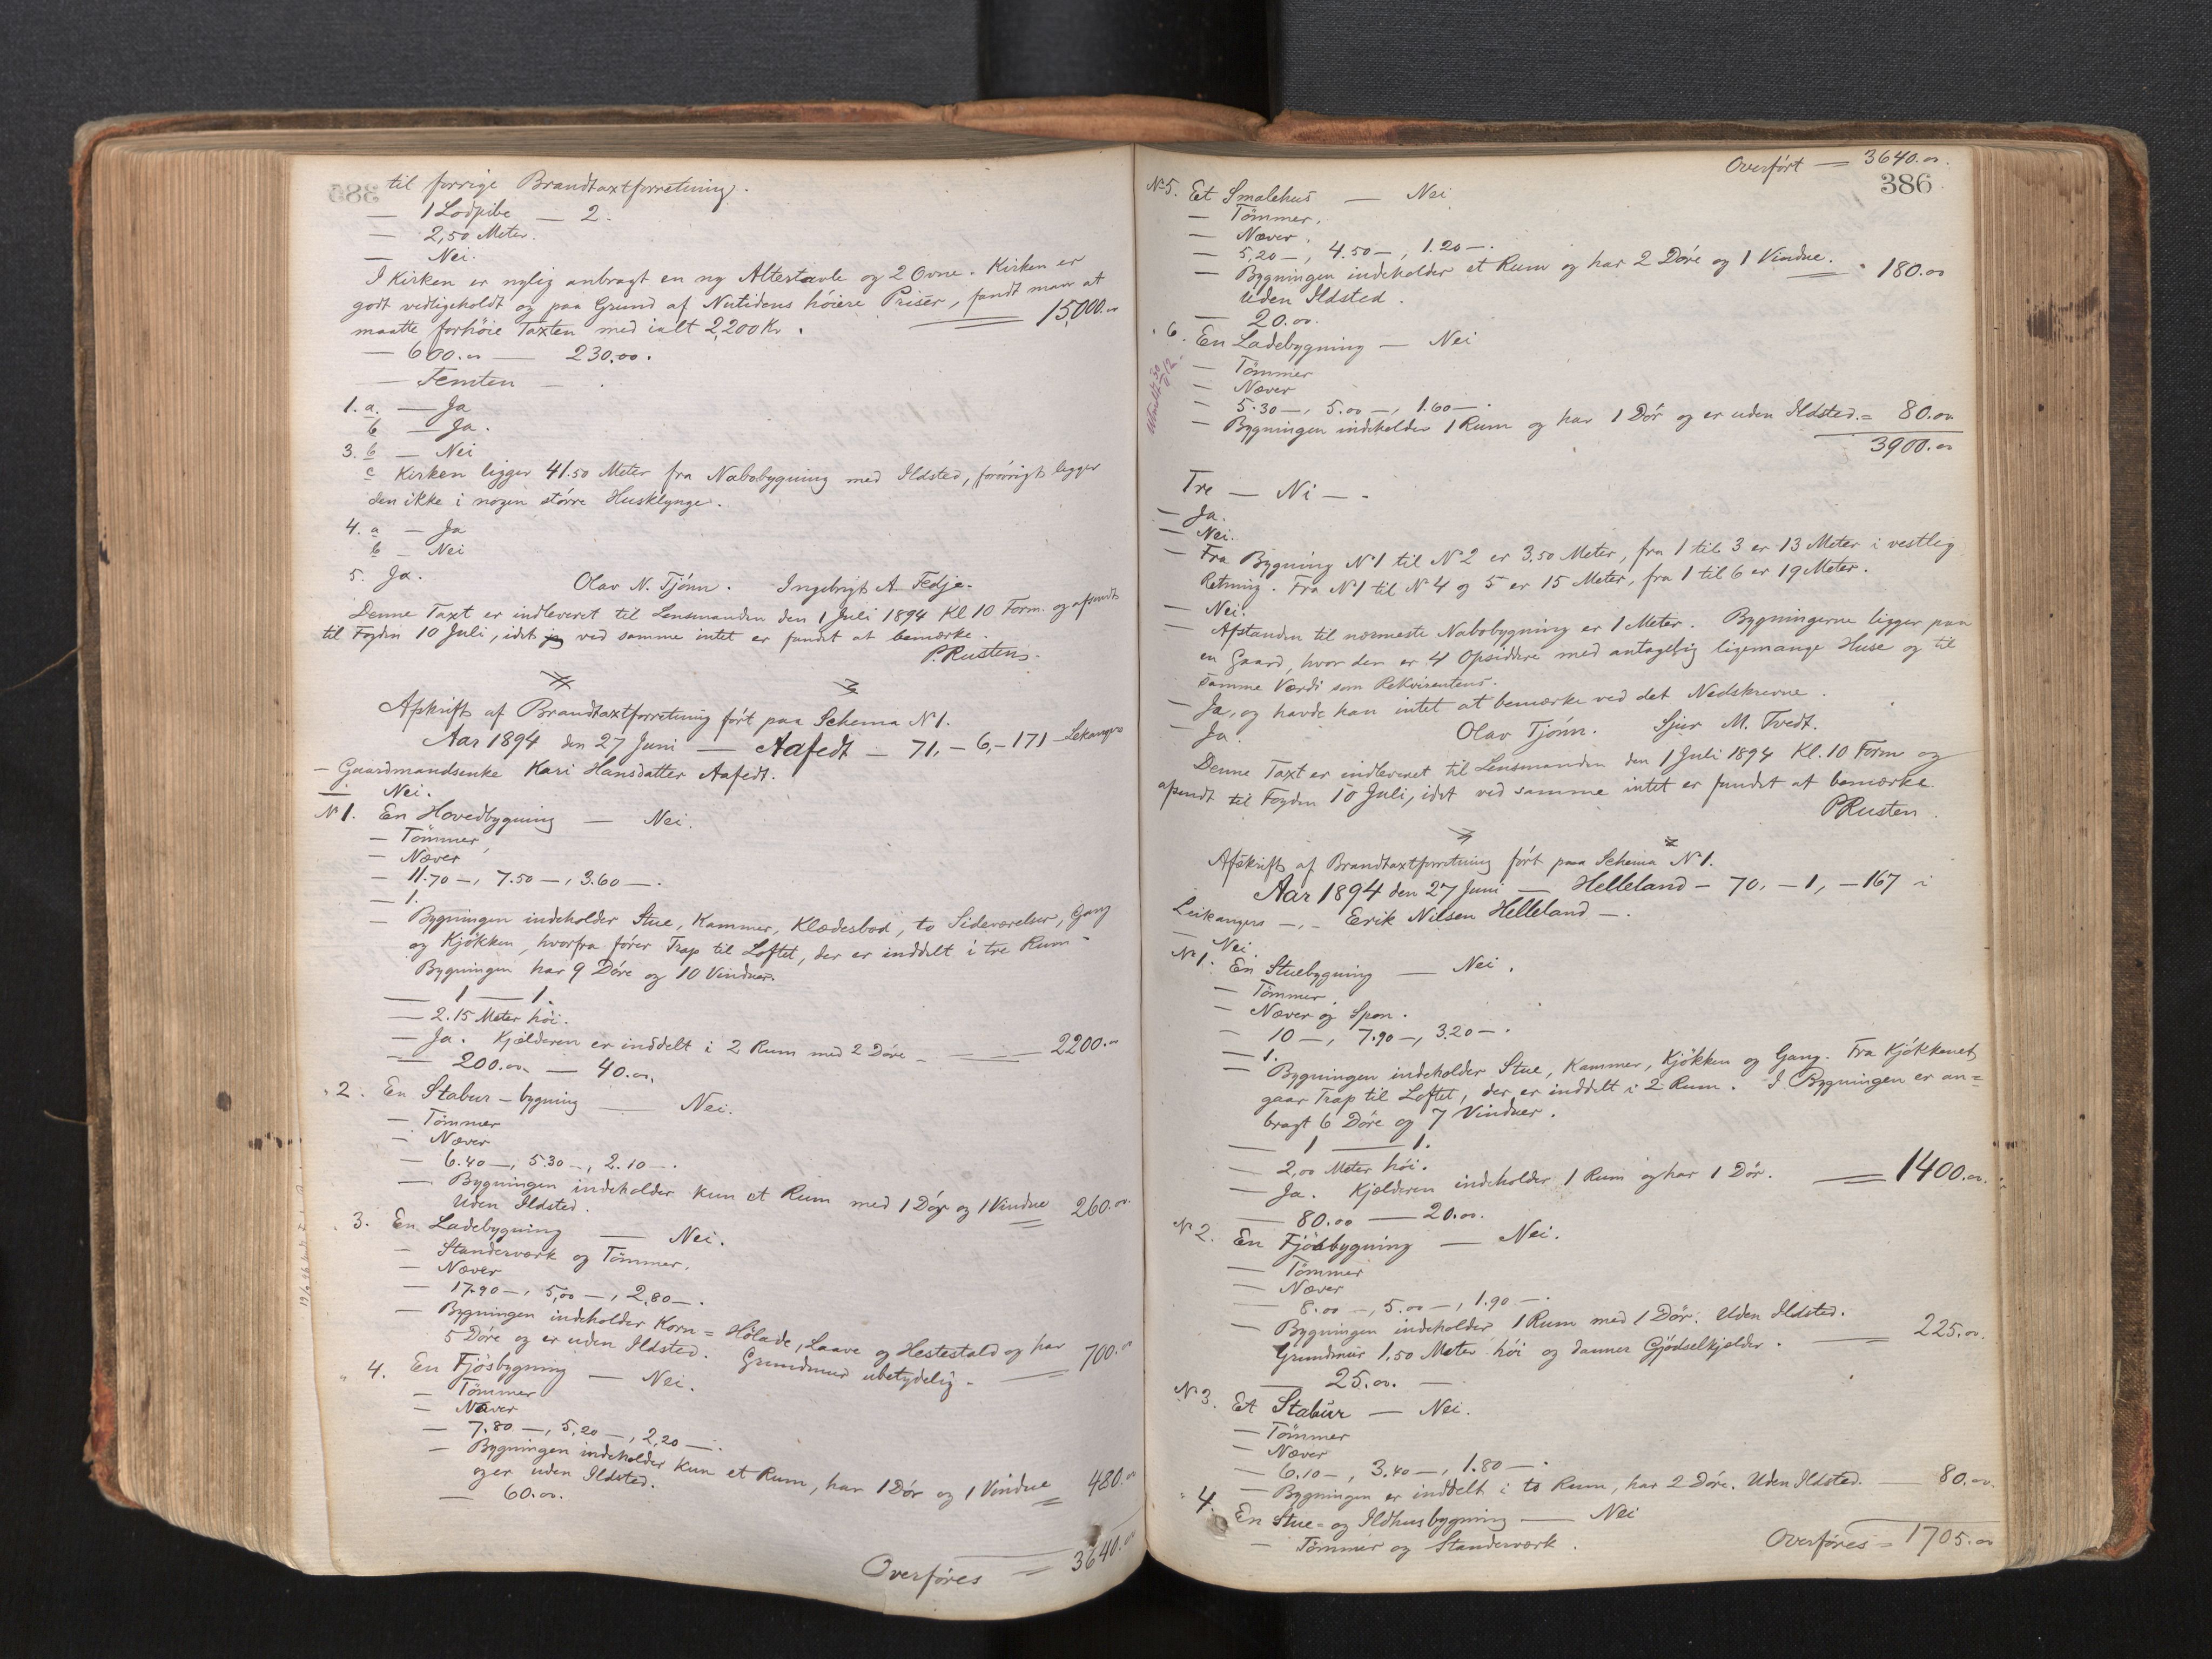 til forrige Brandtaxtforretning.
— 1 Lodpibe — 2.
— 2,50 Meter.
— Nei.
I Kirken er nylig anbragt en ny Altertavle og 2 Ovne. Kirken er
godt vedligeholdt og paa Grund af Nutidens höiere Priser, fandt man at
maatte forhöie Taxten med ialt 2,200 Kr. 15,000.00
— 600.00 — 230.00.
— Femten —.
1. a. — Ja
b — Ja.
3. b — Nei
c Kirken ligger 41.50 Meter fra Nabobygning med Ildsted, forövrigt ligger
den ikke i nogen större Husklynge.
4. a — Ja
b — Nei
5. Ja.
Olav N. Tjönn. Ingebrigt A. Fedje.
Denne Taxt er indleveret til Lensmanden den 1 Juli 1894 Kl 10 Form. og afsendt
til Fogden 10 Juli, idet jeg ved samme intet er fundet at bemærke.
P. Rusten.
Afskrift af Brandtaxtforretning fört paa Schema No 1.
Aar 1894 den 27 Juni — Aafedt — 71, — 6, — 171 — Lekangers
— Gaardmandsenke Kari Hansdatter Aafedt.
— Nei.
No 1. En Hovedbygning — Nei.
— Tömmer
— Næver
— 11.70 —, 7.50 —, 3.60 —.
— 1.
— Bygningen indeholder Stue, Kammer, Klædesbod, to Sideværelser, Gang
og Kjökken, hvorfra förer Trap til Loftet, der er inddelt i tre Rum.
Bygningen har 9 Döre og 10 Vinduer.
— 1 — 1.
— 2.15 Meter höi.
— Ja. Kjælderen er inddelt i 2 Rum med 2 Döre — 2200.00
— 200.00 — 40.00.
" 2. En Stabur-bygning — Nei.
— Tömmer
— Næver
— 6.40 —, 5.30 —, 2.10 —.
— Bygningen indeholder kun et Rum med 1 Dör og 1 Vindue 260.00
Uden Ildsted.
" 3. En Ladebygning — Nei.
— Standerværk og Tömmer.
— Næver
— 17.90 —, 5,00 —, 2,80 —.
— Bygningen indeholder Korn= Hölade, Laave og Hestestald og har
5 Döre og er uden Ildsted. Grundmur ubetydelig. — 700.00
" 4. En Fjösbygning — Nei.
— Tömmer
— Næver
— 7.80 —, 5,20 —, 2,20 —.
— Bygningen indeholder kun et Rum, har 1 Dör og 1 Vindue 480.00
og er uden Ildsted.
— 60.00.
Overföres = 3640.00
Overfört — 3640.00.
386
No 5. Et Smalehus — Nei
— Tömmer.
— Næver.
— 5,20 —, 4.50 —, 1.20 —.
— Bygningen indeholder et Rum og har 2 Döre og 1 Vindue. 180.00
Uden Ildsted.
— 20.00.
" 6. En Ladebygning — Nei
— Tömmer
— Næver
— 5.30 —, 5.00 —, 1.60 —.
— Bygningen indeholder 1 Rum og har 1 Dör og er uden Ildsted. = 80.00
3900.00
Tre — Ni —.
— Ja.
— Nei.
— Fra Bygning No 1 til No 2 er 3.50 Meter, fra 1 til 3 er 13 Meter i vestlig
Retning. Fra No 1 til No 4 og 5 er 15 Meter, fra 1 til 6 er 19 Meter.
— Nei.
— Afstanden til nærmeste Nabobygning er 1 Meter. Bygningerne ligger paa
en Gaard, hvor der er 4 Opsiddere med antagelig ligemange Huse og til
samme Værdi som Rekvirentens.
— Ja, og havde han intet at bemærke ved det Nedskrevne.
— Ja.
Olav Tjönn. Sjur M. Tvedt.
Denne Taxt er indleveret til Lensmanden den 1 Juli 1894 Kl. 10 Form og
afsendt til Fogden 10 Juli, idet ved samme intet er fundet at bemærke.
P Rusten.
Afskrift af Brandtaxtforretning fört paa Schema No 1.
Aar 1894 den 27 Juni — Helleland — 70, — 1, — 167 i
Leikangers —,— Erik Nilsen Helleland —.
— Nei
No 1. En Stuebygning — Nei.
— Tömmer.
— Næver og Spon.
— 10 —, 7.90 —, 3.20 —.
— 1.
— Bygningen indeholder Stue, Kammer, Kjökken og Gang. Fra Kjökkenet
gaar Trap til Loftet, der er inddelt i 2 Rum. I Bygningen er an=
bragt 6 Döre og 7 Vinduer.
— 1 — 1.
— 2,00 Meter höi.
— Ja. Kjælderen indeholder 1 Rum og har 1 Dör. — 1400.00.
— 80.00 — 20.00.
No 2. En Fjösbygning — Nei.
— Tömmer
— Næver
— 8.00 —, 5.00 —, 1.90 —.
— Bygningen indeholder 1 Rum med 1 Dör. Uden Ildsted.
Grundmur 1,50 Meter höi og danner Gjödselkjælder. — 225.00.
— 25.00. —
No 3. Et Stabur — Nei.
— Tömmer
— Næver
— 6.10 —, 3.40 —, 1.80 —.
— Bygningen er inddelt i to Rum, har 2 Döre. Uden Ildsted. 80.00.
" 4. En Stue- og Ildhusbygning — Nei
— Tömmer og Standerværk.
Overföres = 1705.00